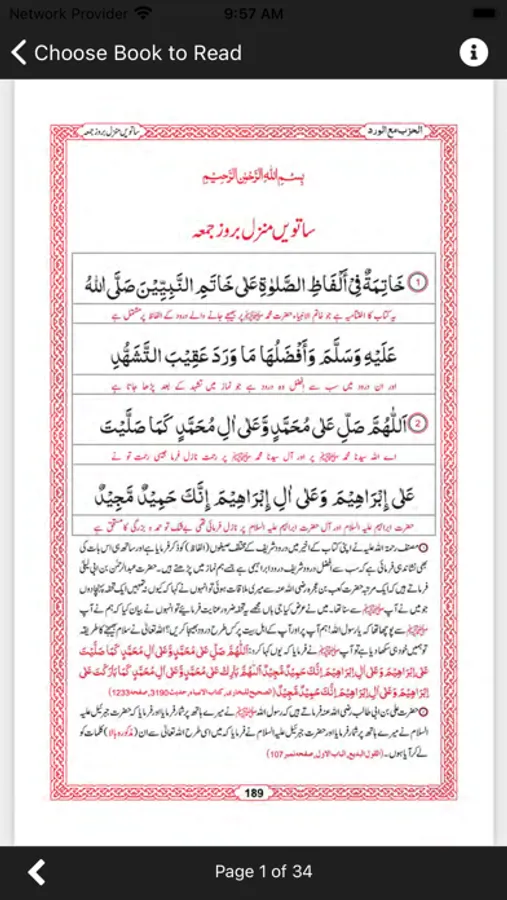 Network Provider 9:57 AM
Choose Book to Read
الحزب مع الورد
ساتویں منزل بروز جمعہ
بِسْمِ اللهِ الرَّحْمٰنِ الرَّحِيْمِ
ساتویں منزل بروز جمعہ
① خَاتِمَةٌ فِيْ أَلْفَاظِ الصَّلٰوةِ عَلٰى خَاتَمِ النَّبِيِّيْنَ صَلَّى اللهُ
یہ کتاب کا اختتامیہ ہے جو خاتم الانبیاء حضرت محمد ﷺ پر بھیجے جانے والے درود کے الفاظ پر مشتمل ہے
عَلَيْهِ وَسَلَّمَ وَأَفْضَلُهَا مَا وَرَدَ عَقِيْبَ التَّشَهُّدِ
اور ان درود میں سب سے افضل وہ درود ہے جو نماز میں تشہد کے بعد پڑھا جاتا ہے
② اَللّٰهُمَّ صَلِّ عَلٰى مُحَمَّدٍ وَّعَلٰى اٰلِ مُحَمَّدٍ كَمَا صَلَّيْتَ
اے اللہ سیدنا محمد ﷺ پر اور آل سیدنا محمد ﷺ پر رحمت نازل فرما جیسی رحمت تو نے
عَلٰى إِبْرَاهِيْمَ وَعَلٰى اٰلِ إِبْرَاهِيْمَ إِنَّكَ حَمِيْدٌ مَّجِيْدٌ
حضرت ابراہیم علیہ السلام اور آل حضرت ابراہیم علیہ السلام پر نازل فرمائی تھی بے شک تو حمد و بزرگی کا مستحق ہے
مصنف رحمۃ اللہ علیہ نے اپنی کتاب کے اخیر میں درود شریف کے مختلف صیغوں (الفاظ) کو ذکر فرمایا ہے اور ساتھ ہی اس بات کی
بھی نشاندہی فرمائی ہے کہ سب سے افضل درود شریف درود ابراہیمی ہے جسے ہم نماز میں پڑھتے ہیں۔ حضرت عبدالرحمٰن بن ابی لیلیٰ
فرماتے ہیں کہ ایک مرتبہ حضرت کعب بن عجرہ رضی اللہ عنہ سے میری ملاقات ہوئی تو انہوں نے کہا کہ کیوں نہ تمہیں ایک تحفہ پہنچا دوں
جو میں نے آپ ﷺ سے سنا تھا۔ میں نے عرض کیا جی ہاں مجھے یہ تحفہ ضرور عنایت فرمایئے تو انہوں نے بیان کیا کہ ہم نے آپ
ﷺ سے پوچھا تھا کہ یا رسول اللہ! ہم آپ پر اور آپ کے اہل بیت پر کس طرح درود بھیجا کریں؟ اللہ تعالیٰ نے سلام بھیجنے کا طریقہ
تو ہمیں خود ہی سکھا دیا ہے تو آپ ﷺ نے فرمایا کہ یوں کہا کرو: اَللّٰهُمَّ صَلِّ عَلٰى مُحَمَّدٍ وَّعَلٰى اٰلِ مُحَمَّدٍ كَمَا صَلَّيْتَ
عَلٰى اِبْرَاهِيْمَ وَعَلٰى اٰلِ اِبْرَاهِيْمَ اِنَّكَ حَمِيْدٌ مَّجِيْدٌ اَللّٰهُمَّ بَارِكْ عَلٰى مُحَمَّدٍ وَّعَلٰى اٰلِ مُحَمَّدٍ كَمَا بَارَكْتَ عَلٰى
اِبْرَاهِيْمَ وَعَلٰى اٰلِ اِبْرَاهِيْمَ اِنَّكَ حَمِيْدٌ مَّجِيْدٌ (الصحیح للبخاری، کتاب الانبیاء، حدیث 3190، صفحہ 1233)
حضرت علی بن ابی طالب رضی اللہ عنہ فرماتے ہیں کہ رسول اللہ ﷺ نے میرے ہاتھ پر شمار فرمایا اور فرمایا کہ حضرت جبرئیل علیہ
السلام نے میرے ہاتھ پر شمار فرمایا اور حضرت جبرئیل علیہ السلام نے فرمایا کہ میں اسی طرح اللہ تعالیٰ سے ان (مذکورہ بالا) کلمات کو
لے کر آیا ہوں۔ (القول البدیع، الباب الاول، صفحہ نمبر 107)
189
Page 1 of 34